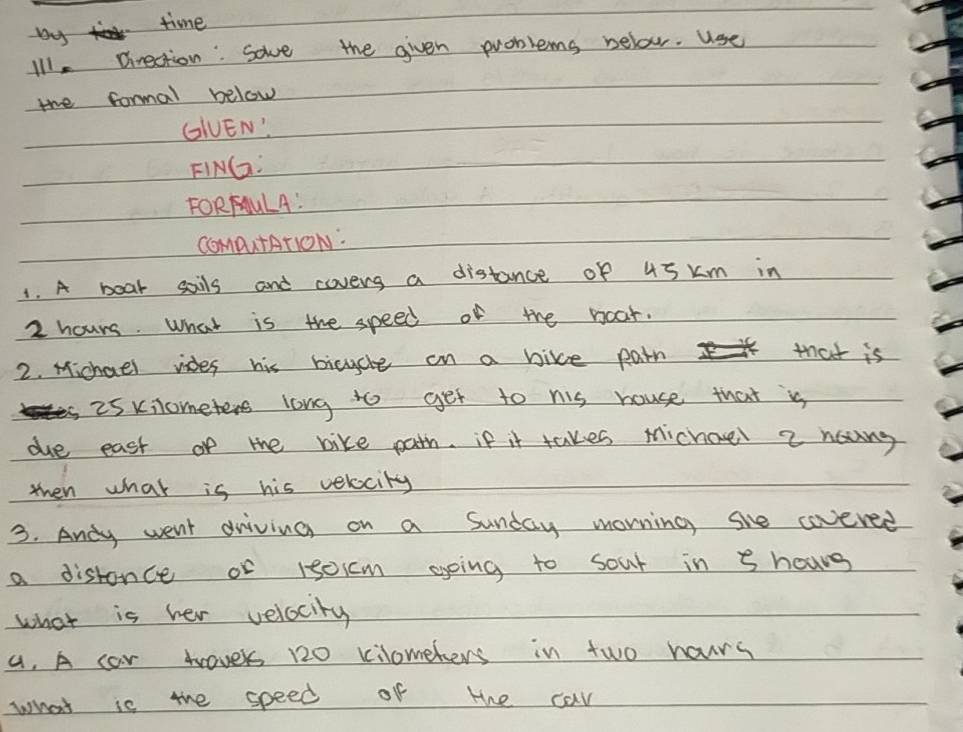 by time
III. Direction: Solve the given problems below. Use
the formal below
GIVEN:
FING:
FORMULA:
COMPUTATION:
1. A boat sails and covers a distance of 45 km in
2 hours. What is the speed of the boat.
2. Michael rides his bicycle on a bike path that is
25 kilometers long to get to his house that is
due east of the bike path. if it takes Michael 2 hours
then what is his velocity
3. Andy went driving on a Sunday morning She covered
a distance of 150km going to sout in hours
what is her velocity
4. A car travels 120 kilometers in two hours
what is the speed of the car